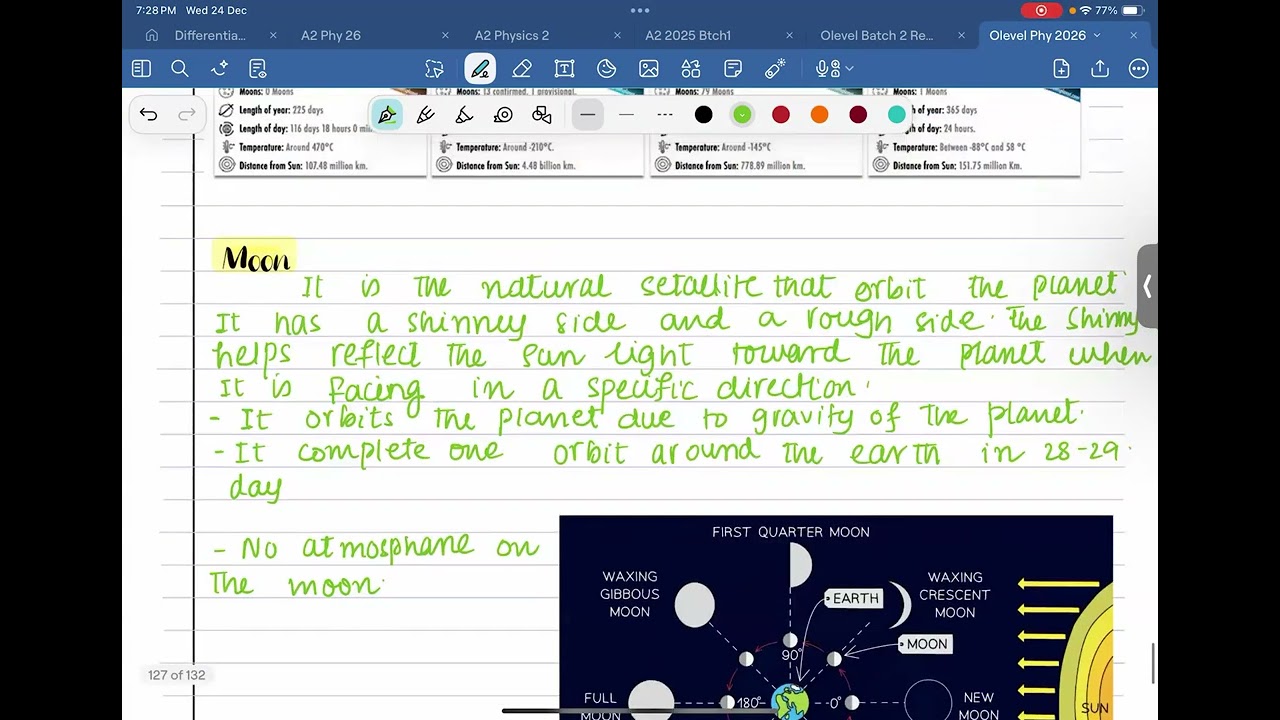 7:28 PM Wed 24 Dec
77%
Differentia...
A2 Phy 26
A2 Physics 2
A2 2025 Btch1
Olevel Batch 2 Re...
Olevel Phy 2026
Moons: 0 Moons
Moons: 13 confirmed, 1 provisional.
Moons: 79 Moons
Moons: 1 Moons
Length of year: 225 days
of year: 365 days
Length of day: 116 days 18 hours 0 min
of day: 24 hours.
Temperature: Around 470°C
Temperature: Around -210°C.
Temperature: Around -145°C
Temperature: Between -88°C and 58 °C
Distance from Sun: 107.48 million km.
Distance from Sun: 4.48 billion Km.
Distance from Sun: 778.89 million km.
Distance from Sun: 151.75 million Km.
Moon
It is the natural setallite that orbit the planet
It has a shinney side and a rough side. The shinny
helps reflect the sun light toward the planet when
It is facing in a specific direction.
- It orbits the planet due to gravity of the planet.
- It complete one orbit around the earth in 28-29.
day
- No atmosphane on
The moon.
FIRST QUARTER MOON
WAXING
GIBBOUS
MOON
EARTH
WAXING
CRESCENT
MOON
MOON
90°
FULL
MOON
180°
0°
NEW
MOON
SUN
127 of 132